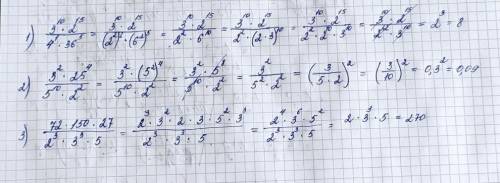 1) (3^10 · 2^15)/(4 · 36^5) = (3^10 · 2^15)/((2^2) · (6^2)^5) = (3^10 · 2^15)/(2^2 · 6^10) = (3^10 · 2^15)/(2^2 · (2 · 3)^10) = (3^10 · 2^15)/(2^2 · 2^10 · 3^10) = (3^10 · 2^15)/(2^12 · 3^10) = 2^3 = 8
2) (3^2 · 25^4)/(5^10 · 2^2) = (3^2 · (5^2)^4)/(5^10 · 2^2) = (3^2 · 5^8)/(5^10 · 2^2) = 3^2/(5^2 · 2^2) = (3/(5 · 2))^2 = (3/10)^2 = 0,3^2 = 0,09
3) (72 · 150 · 27)/(2^3 · 3^3 · 5) = (2^3 · 3^2 · 2 · 3 · 5^2 · 3^3)/(2^3 · 3^3 · 5) = (2^4 · 3^6 · 5^2)/(2^3 · 3^3 · 5) = 2 · 3^3 · 5 = 270